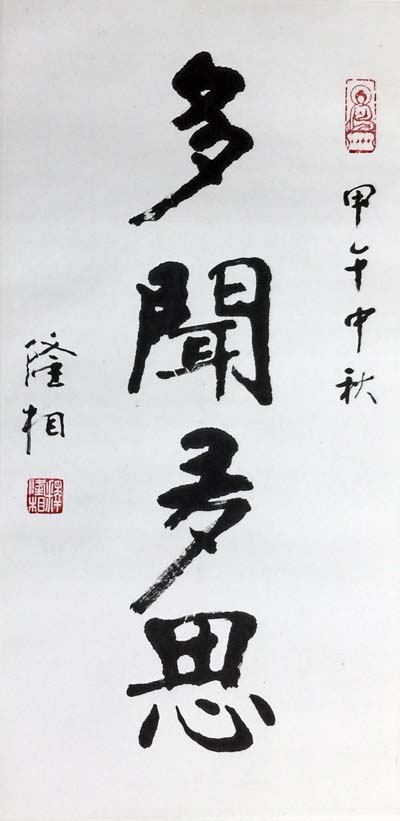 甲午中秋
多聞多思
隆相